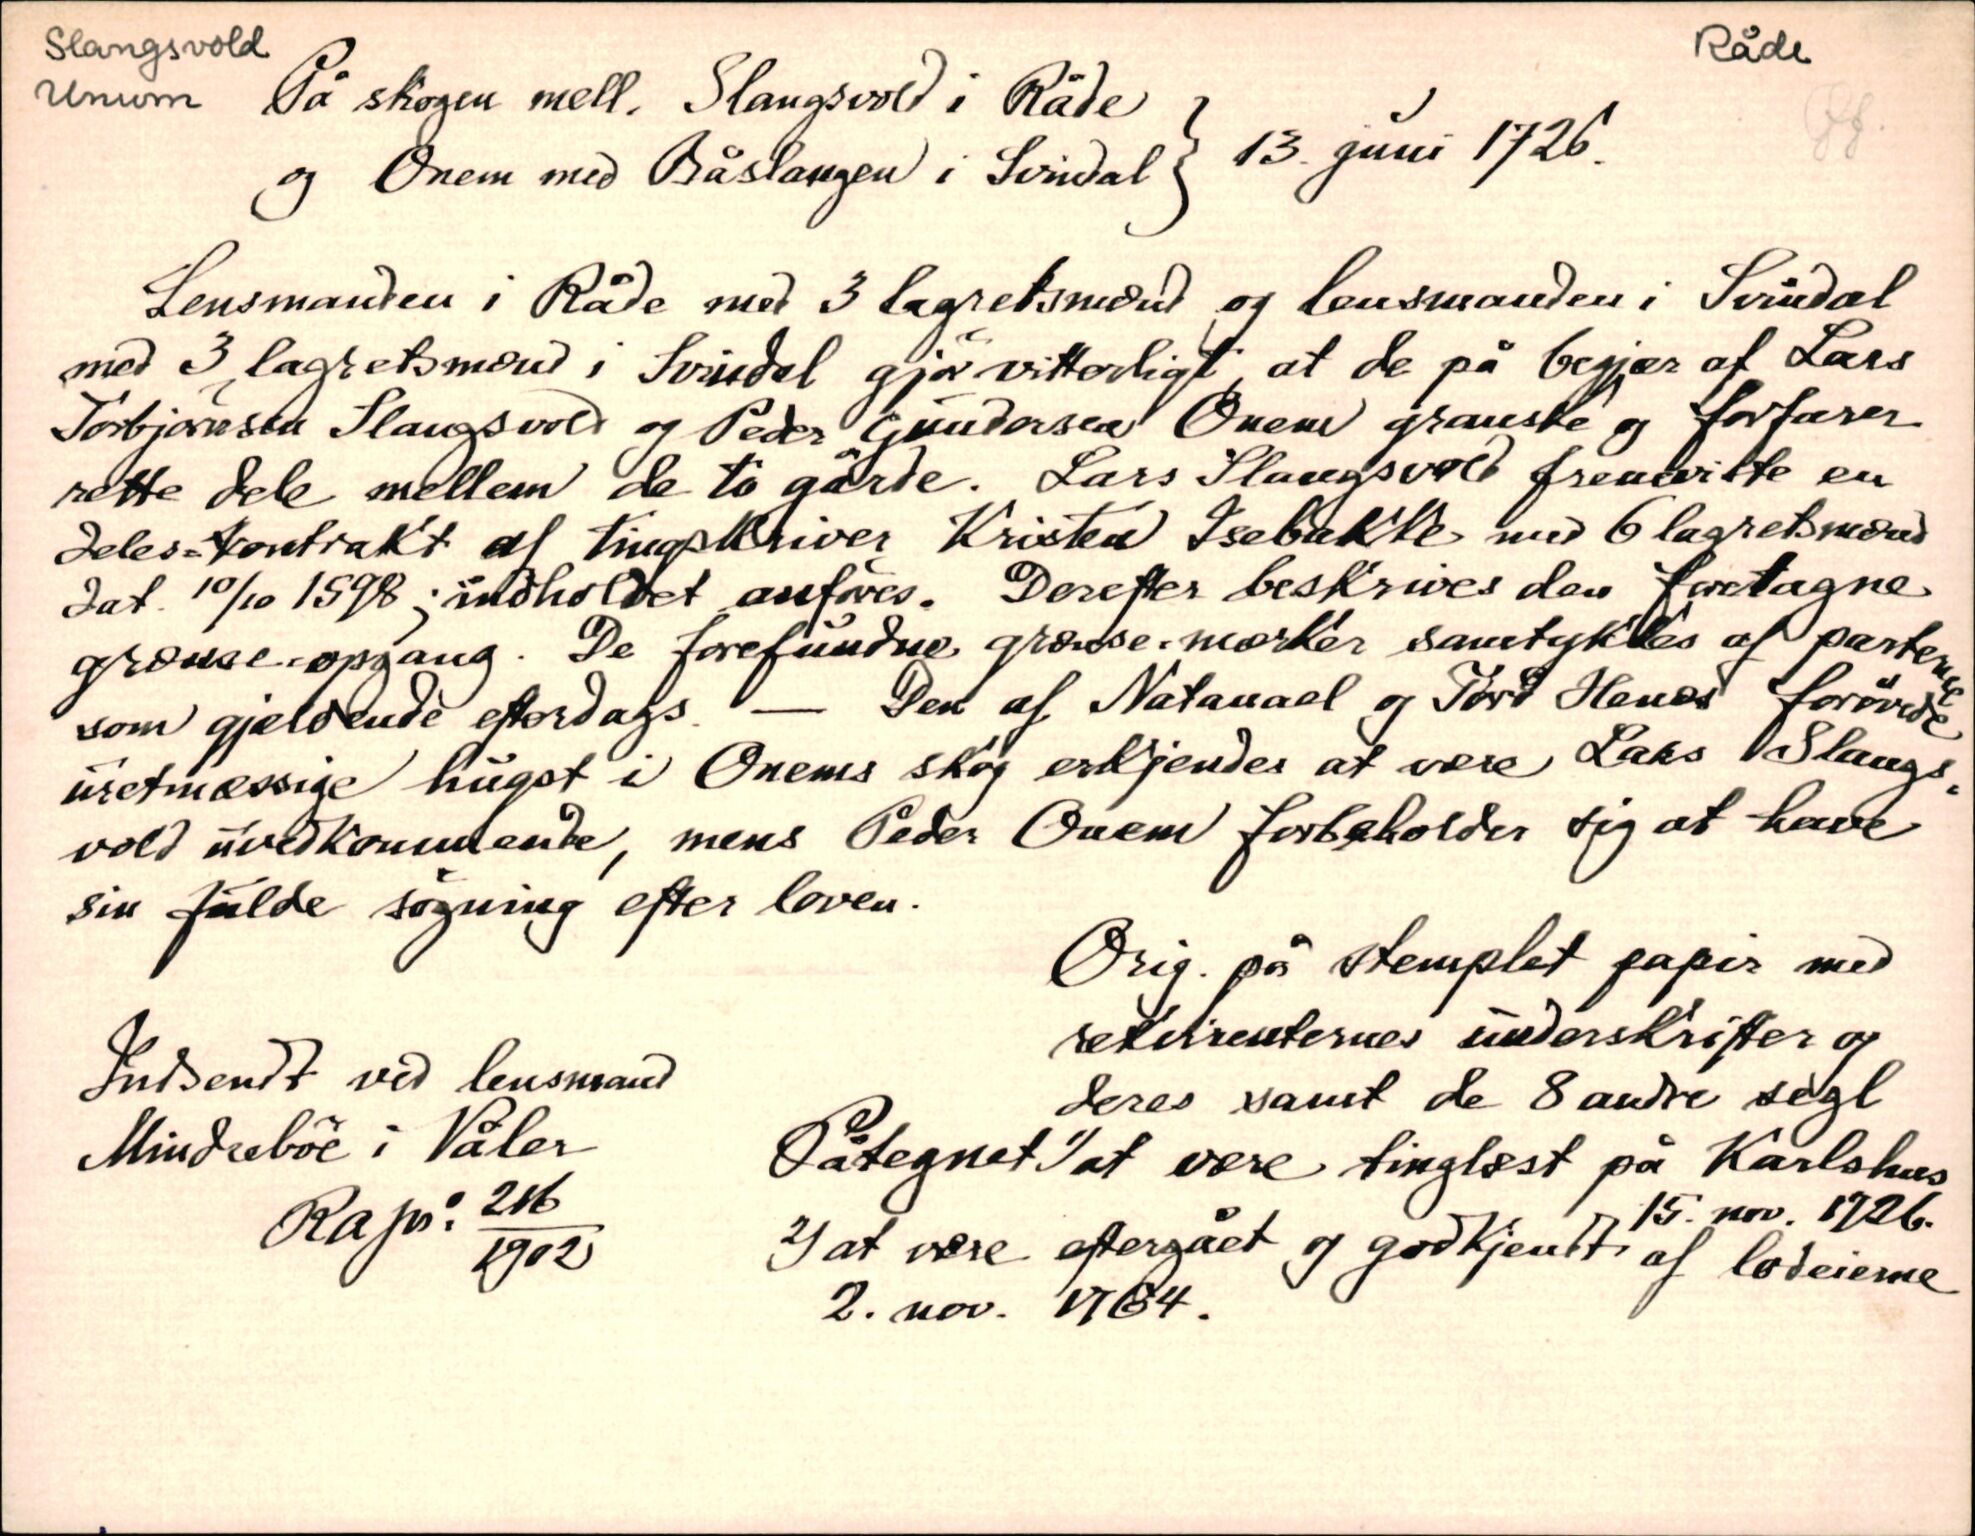 Slangsvold
Unum
Råde
På skogen mell. Slangsvold i Råde
og Onem med Båslangen i Svindal } 13. juni 1726.
Lensmanden i Råde med 3 lagretsmænd og lensmanden i Svindal
med 3 lagretsmænd i Svindal gjør vitterligt, at de på begjær af Lars
Torbjørnsen Slangsvold og Peder Gundersen Onem granske og forfarer
rette dele mellem de to gårde. Lars Slangsvold fremviste en
deles-kontrakt af tingskriver Kristen Isebakke med 6 lagretsmænd
dat. 10/10 1598; indholdet anføres. Derefter beskrives den foretagne
grænse-opgang. De forefundne grænse-mærker samtykkes af parterne
som gjældende efterdags. — Den af Natanael og Tord Henes forøvede
uretmæssige hugst i Onems skog erkjendes at være Lars Slangs-
vold uvedkommende, mens Peder Onem forbeholder sig at have
sin fulde søgning efter loven.
Orig. på stemplet papir med
rekvirenternes underskrifter og
deres samt de 8 andre segl
Indsendt ved lensmand
Mindrebøe i Våler
Ra jnr: 216/1902
Påtegnet 1/ at være tinglæst på Karlshus
15. nov. 1726.
2/ at være eftergået og godkjendt af lodeierne
2. nov. 1764.